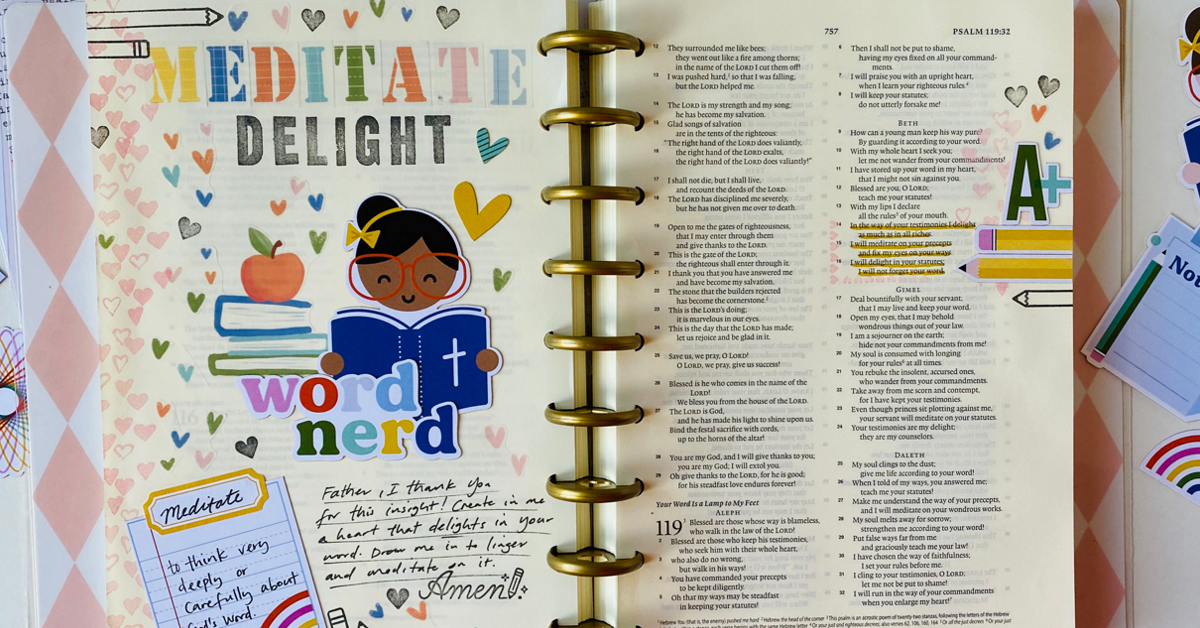 MEDITATE
DELIGHT
word
nerd
Meditate
to think very
deeply or
carefully about
God's Word.
Father, I thank you
for this insight! Create in me
a heart that delights in your
word. Draw me in to linger
and meditate on it.
Amen!
757 PSALM 119:32
12 They surrounded me like bees;
they went out like a fire among thorns;
in the name of the LORD I cut them off!
13 I was pushed hard, so that I was falling,
but the LORD helped me.
14 The LORD is my strength and my song;
he has become my salvation.
15 Glad songs of salvation
are in the tents of the righteous:
"The right hand of the LORD does valiantly,
16 the right hand of the LORD exalts,
the right hand of the LORD does valiantly!"
17 I shall not die, but I shall live,
and recount the deeds of the LORD.
18 The LORD has disciplined me severely,
but he has not given me over to death.
19 Open to me the gates of righteousness,
that I may enter through them
and give thanks to the LORD.
20 This is the gate of the LORD;
the righteous shall enter through it.
21 I thank you that you have answered me
and have become my salvation.
22 The stone that the builders rejected
has become the cornerstone.
23 This is the LORD's doing;
it is marvelous in our eyes.
24 This is the day that the LORD has made;
let us rejoice and be glad in it.
25 Save us, we pray, O LORD!
O LORD, we pray, give us success!
26 Blessed is he who comes in the name of the
LORD!
We bless you from the house of the LORD.
27 The LORD is God,
and he has made his light to shine upon us.
Bind the festal sacrifice with cords,
up to the horns of the altar!
28 You are my God, and I will give thanks to you;
you are my God; I will extol you.
29 Oh give thanks to the LORD, for he is good;
for his steadfast love endures forever!
Your Word Is a Lamp to My Feet
ALEPH
119 Blessed are those whose way is blameless,
who walk in the law of the LORD!
2 Blessed are those who keep his testimonies,
who seek him with their whole heart,
3 who also do no wrong,
but walk in his ways!
4 You have commanded your precepts
to be kept diligently.
5 Oh that my ways may be steadfast
in keeping your statutes!
6 Then I shall not be put to shame,
having my eyes fixed on all your command-
ments.
7 I will praise you with an upright heart,
when I learn your righteous rules.
8 I will keep your statutes;
do not utterly forsake me!
BETH
9 How can a young man keep his way pure?
By guarding it according to your word.
10 With my whole heart I seek you;
let me not wander from your commandments!
11 I have stored up your word in my heart,
that I might not sin against you.
12 Blessed are you, O LORD;
teach me your statutes!
13 With my lips I declare
all the rules of your mouth.
14 In the way of your testimonies I delight
as much as in all riches.
15 I will meditate on your precepts
and fix my eyes on your ways.
16 I will delight in your statutes;
I will not forget your word.
GIMEL
17 Deal bountifully with your servant,
that I may live and keep your word.
18 Open my eyes, that I may behold
wondrous things out of your law.
19 I am a sojourner on the earth;
hide not your commandments from me!
20 My soul is consumed with longing
for your rules at all times.
21 You rebuke the insolent, accursed ones,
who wander from your commandments.
22 Take away from me scorn and contempt,
for I have kept your testimonies.
23 Even though princes sit plotting against me,
your servant will meditate on your statutes.
24 Your testimonies are my delight;
they are my counselors.
DALETH
25 My soul clings to the dust;
give me life according to your word!
26 When I told of my ways, you answered me;
teach me your statutes!
27 Make me understand the way of your precepts,
and I will meditate on your wondrous works.
28 My soul melts away for sorrow;
strengthen me according to your word!
29 Put false ways far from me
and graciously teach me your law!
30 I have chosen the way of faithfulness;
I set your rules before me.
31 I cling to your testimonies, O LORD;
let me not be put to shame!
32 I will run in the way of your commandments
when you enlarge my heart!
A+